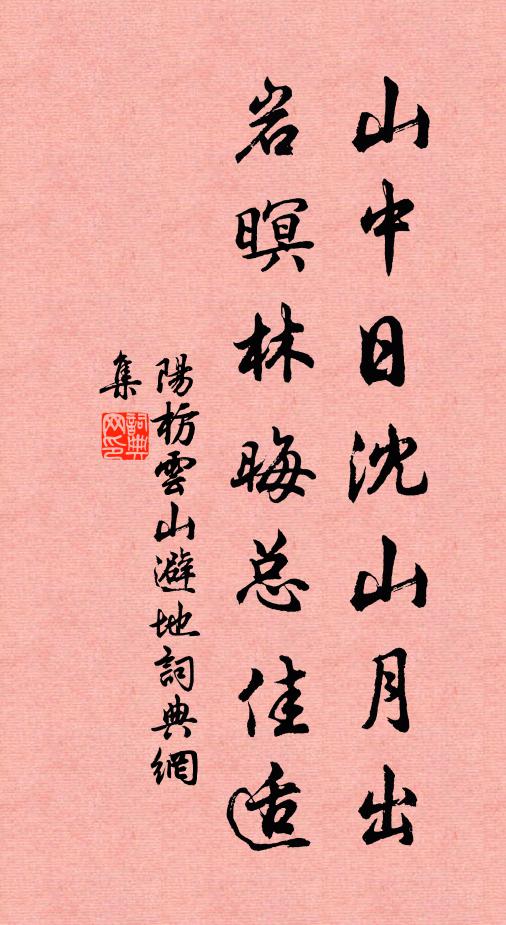 山中日沈山月出
岩暝林晦总佳适
陽枋雲山避地詞典網
集
詞典
网印